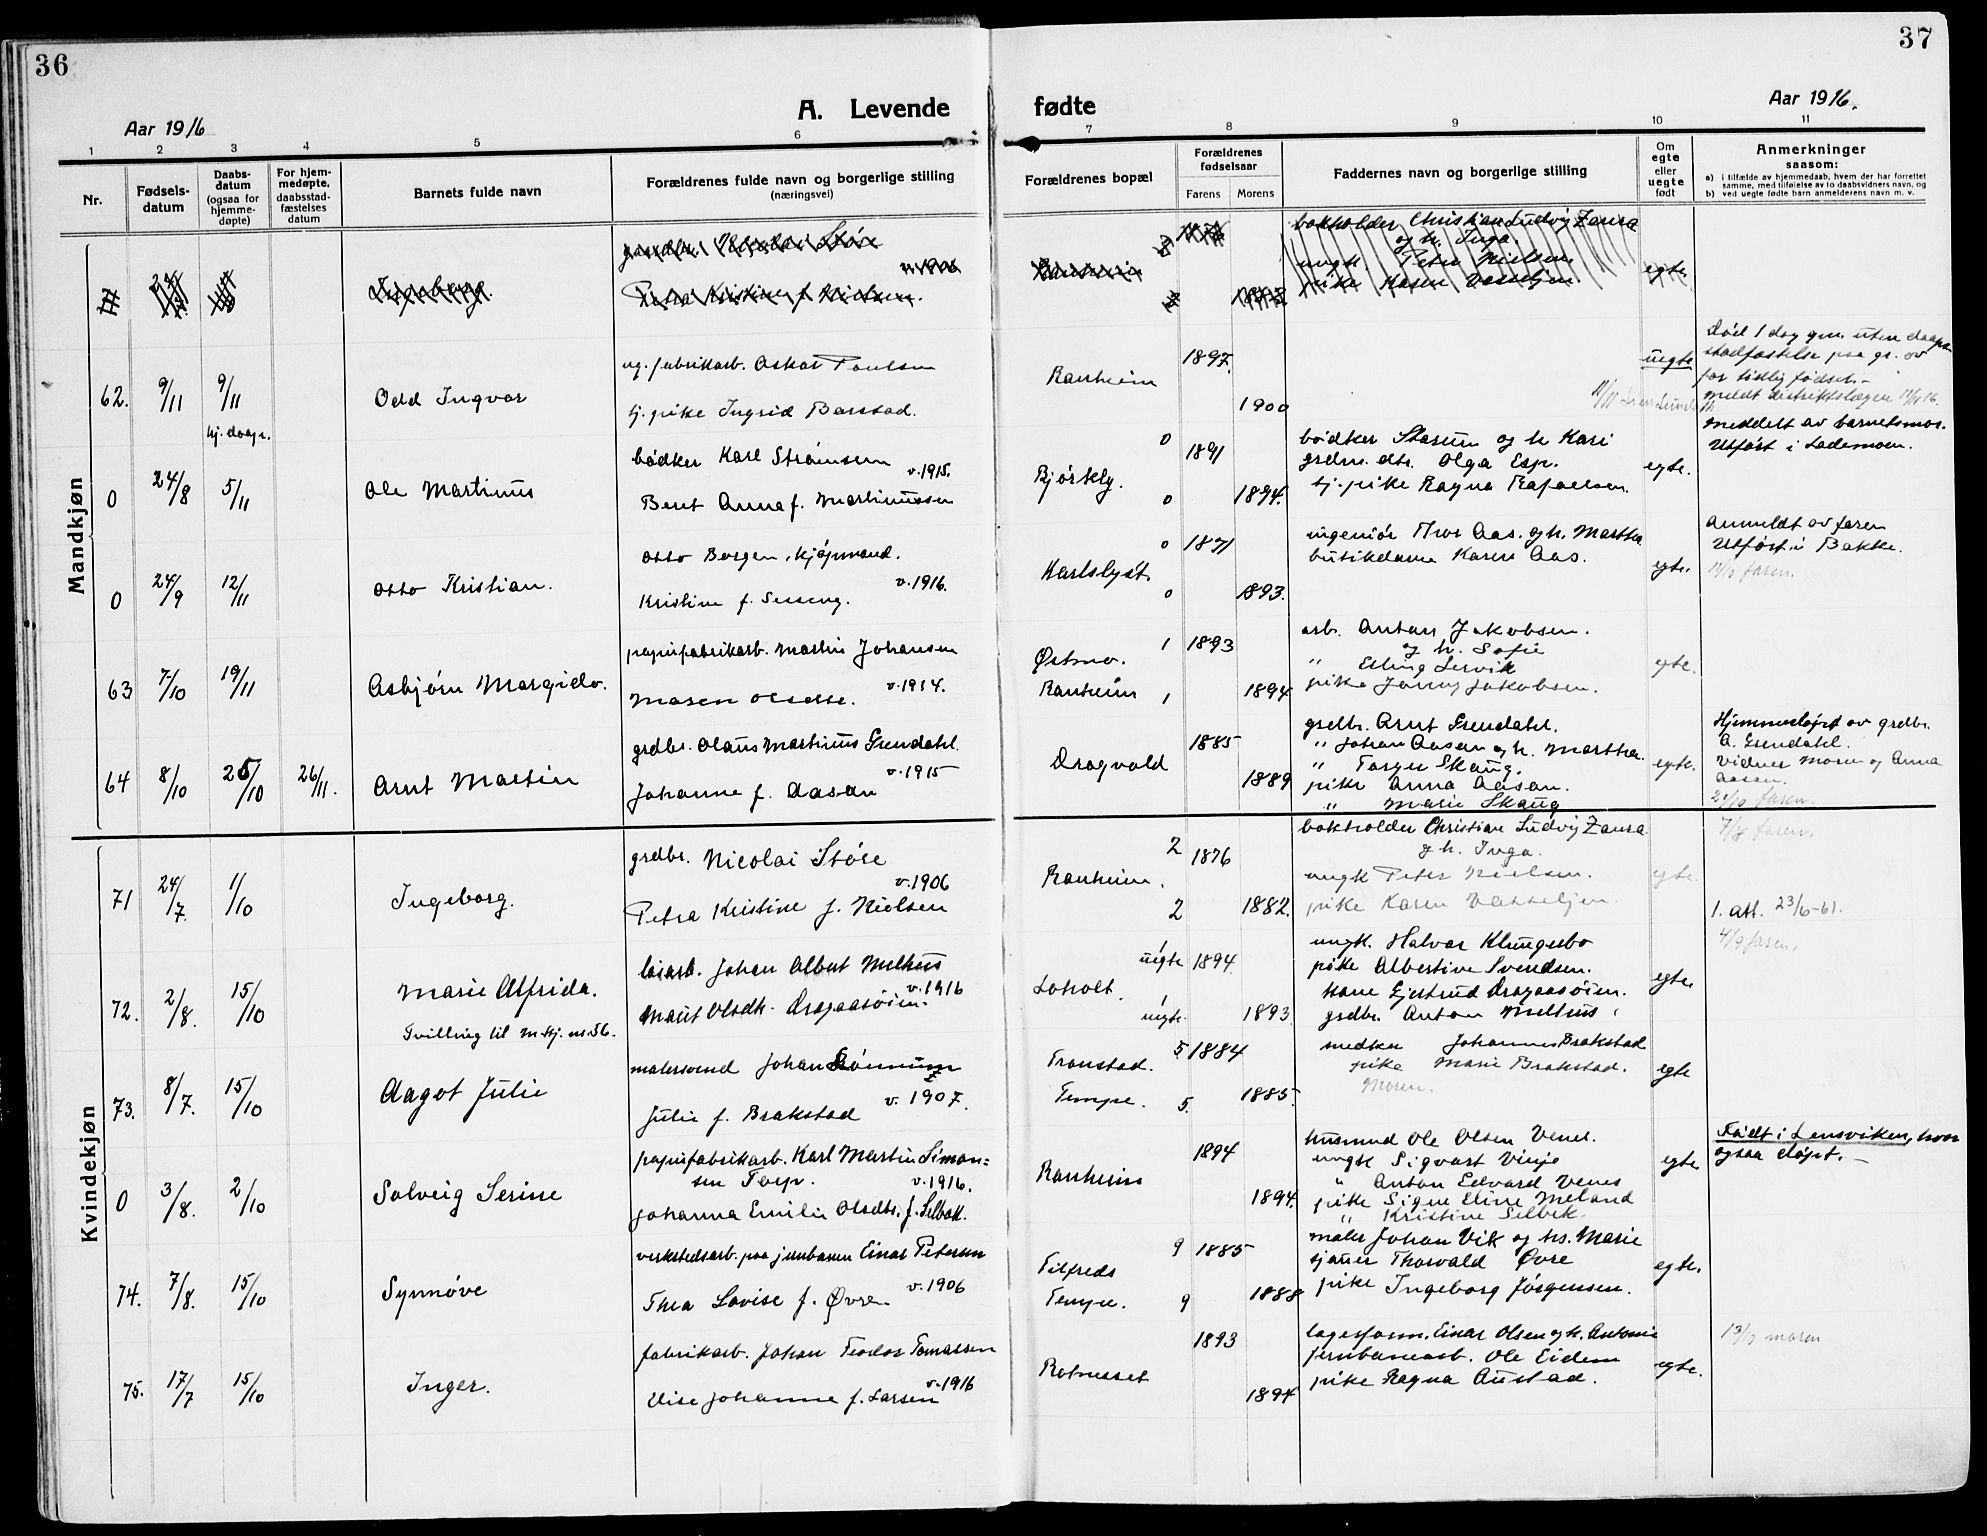 36
37
Aar 1916
A. Levende
fødte
Aar 1916.
1 2 3 4 5 6 7 8 9 10 11
Nr.
Fødsels-
datum
Daabs-
datum
(ogsaa for
hjemme-
døpte)
For hjem-
medøpte,
daabsstad-
fæstelses
datum
Barnets fulde navn
Forældrenes fulde navn og borgerlige stilling
(næringsvei)
Forældrenes bopæl
Forældrenes
fødselsaar
Farens Morens
Faddernes navn og borgerlige stilling
Om
egte
eller
uegte
født
Anmerkninger
saasom:
a) i tilfælde av hjemmedaab, hvem der har forrettet
samme, med tilføielse av to daabsvidners navn, og
b) ved uegte fødte barn anmelderens navn m. v.
Mandkjøn
Ingeborg.
Petra Kristine f. Nielsen.
Ranheim
bokholder Christian Ludvig Zansa
og h. Inga.
ungk. Peter Nielsen
pike Karen Vasseljen
egte.
62. 9/11 9/11
hj. døpt.
Odd Ingvar
ug. fabrikarb. Oskar Paulsen
tj. pike Ingrid Barstad.
Ranheim
1897.
1900
uegte
Død 1 dag gm. uten daaps
stadfæstelse paa gr. av
for tidlig fødsel.-
meldt distriktslægen
meddelt av barnetsmor.
0 24/8 5/11
Ole Martinus
bødker Karl Strømsem
v. 1915.
Beret Anna f. Martinussen
Bjørkly.
0 1891
0 1894.
bødker Storum og h Kari
grdm. dtr. Olga Esp.
tj. pike Ragna Rafaelsen.
egte.
Utført i Lademoen.
0 24/9 12/11
Otto Kristian.
Otto Borgen, kjøpmand.
v. 1916.
Kristine f. Sesseng.
Karlslyst.
0 1871
0 1893.
ingeniør Thor Aas. og h. Martha
butikdame Karen Aas.
egte.
Anmeldt av faren
Utført i Bakke.
faren.
63 7/10 19/11
Asbjørn Margido.
papirfabrikarb. Martin Johansen
v. 1914.
Maren Olsdtr.
Østmo.
Ranheim
1 1893
1 1894
arb. Anton Jakobsen.
og h. Sofie
" Erling Lervik
pike Jenny Jakobsen.
egte.
64 8/10 25/10 26/11.
Arnt Martin
grdbr. Olaus Martinus Grendahl.
v. 1915
Johanne f. Aasan
Dragvold
1885
1889
grdbr. Arnt Grendahl.
" Johan Aasan og h. Martha
" Torger Skaug.
pike Anna Aasan.
" Marie Skaug
egte.
Hjemmedøpt av grdbr.
A. Grendahl.
Vidner Marie og Anna
Aasan.
faren.
Kvindekjøn
71 24/7. 1/10
Ingeborg.
grdbr. Nicolai Støre
v. 1906
Petra Kristine f. Nielsen
Ranheim.
2 1876
2 1882.
bokholder Christian Ludvig Zansa
og h. Inga.
ungk Peter Nielsen.
pike Karen Vasseljen
egte.
faren.
1. att. 23/6-61.
72. 2/8. 15/10
Marie Alfrida.
Tvilling til m.kj. nr. 56.
løsarb. Johan Albert Melhus
v. 1916
Marit Olsdtr. Dragaasøien.
Loholt.
uegte 1894.
uegte. 1893.
ungk. Halvar Klungerbo
pike Albertine Svendsen.
kone Gjertrud Dragaasøien.
grdbr. Anton Melhus.
egte.
4/9 faren.
73. 8/7. 15/10
Aagot Julie
malersvend Johan Rønnum
v. 1907.
Julie f. Brakstad
Tronstad.
Tempe.
5 1884
5. 1885.
snedker Johannes Brakstad
pike Marie Brakstad.
Moren.
egte
0 3/8. 2/10
Solveig Serine
papirfabrikarb. Karl Martin Simon=
sen Torp.
v. 1916.
Johanna Emilie Olsdtr. f. Selbæk.
Ranheim
1894
1894.
husmnd Ole Olsen Venes.
ungk Sigvart Vinje
" Anton Edvard Venes
pike Signe Eline Meland
" Kristine Selbek.
egte
Født i Lensviken, hvor
ogsaa døpt.-
74. 7/8. 15/10
Synnøve
verkstedsarb. paa jernbanen Einar Petersen
v. 1906
Thea Lovise f. Øvre.
Tilfreds
Tempe.
9 1885
9 1888
maler Johan Vik og hs. Marie
sjauer Thorvald Øvre
pike Ingeborg Jørgensen.
egte.
75. 17/7 15/10
Inger.
fabrikarb. Johan Teodor Tomassen
v. 1916
Elise Johanne f. Larsen
Rotnesset
1893
1894
lagerform. Einar Olsen og h. Antonie
jernbanearb. Ole Eidem
pike Ragna Austad.
egte.
13/9 moren